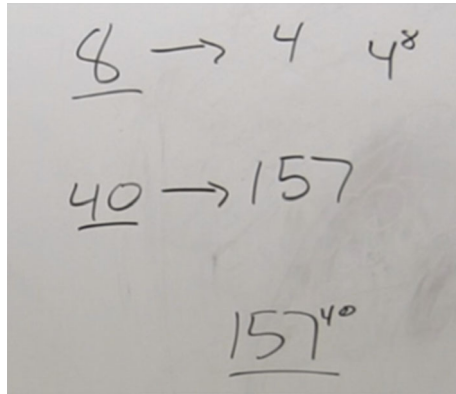 8 → 4 4⁸
40 → 157
157⁴⁰